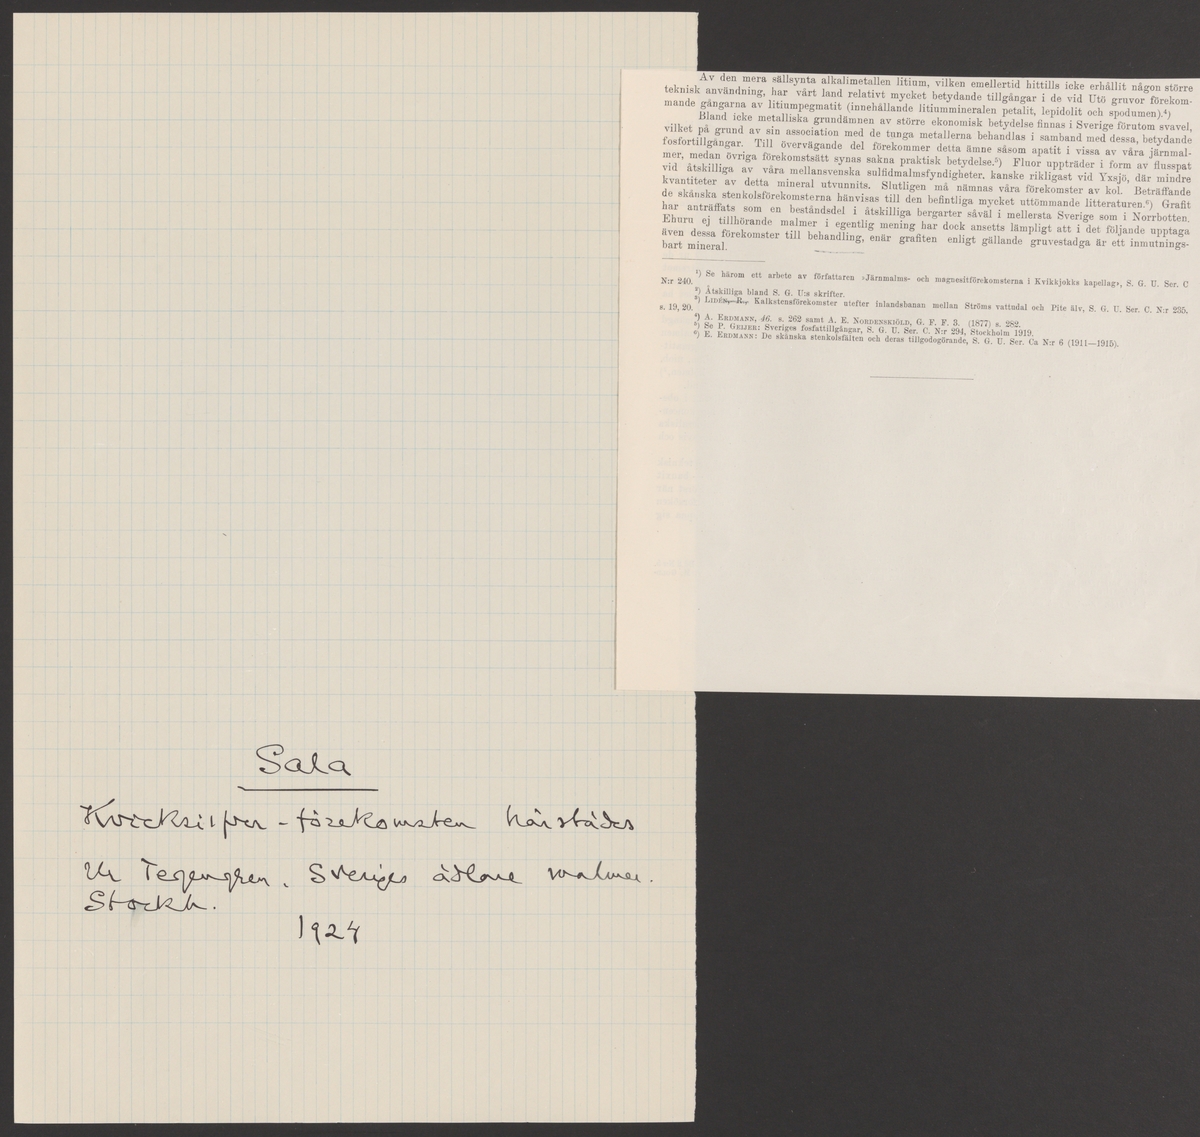 Av den mera sällsynta alkalimetallen litium, vilken emellertid hittills icke erhållit någon större
teknisk användning, har vårt land relativt mycket betydande tillgångar i de vid Utö gruvor förekom-
mande gångarna av litiumpegmatit (innehållande litiummineralen petalit, lepidolit och spodumen).⁴)
Bland icke metalliska grundämnen av större ekonomisk betydelse finnas i Sverige förutom svavel,
vilket på grund av sin association med de tunga metallerna behandlas i samband med dessa, betydande
fosfortillgångar. Till övervägande del förekommer detta ämne såsom apatit i vissa av våra järnmal-
mer, medan övriga förekomstsätt synas sakna praktisk betydelse.⁵) Fluor uppträder i form av flusspat
vid åtskilliga av våra mellansvenska sulfidmalmsfyndigheter, kanske rikligast vid Yxsjö, där mindre
kvantiteter av detta mineral utvunnits. Slutligen må nämnas våra förekomster av kol. Beträffande
de skånska stenkolsförekomsterna hänvisas till den befintliga mycket uttömmande litteraturen.⁶) Grafit
har anträffats som en beståndsdel i åtskilliga bergarter såväl i mellersta Sverige som i Norrbotten.
Ehuru ej tillhörande malmer i egentlig mening har dock ansetts lämpligt att i det följande upptaga
även dessa förekomster till behandling, enär grafiten enligt gällande gruvestadga är ett inmutnings-
bart mineral.
¹) Se härom ett arbete av författaren »Järnmalms- och magnesitförekomsterna i Kvikkjokks kapellag», S. G. U. Ser. C
N:r 240.
²) Åtskilliga bland S. G. U:s skrifter.
³) LIDÉN, R., Kalkstensförekomster utefter inlandsbanan mellan Ströms vattudal och Pite älv, S. G. U. Ser. C. N:r 235,
s. 19, 20.
⁴) A. ERDMANN, 46. s. 262 samt A. E. NORDENSKIÖLD, G. F. F. 3. (1877) s. 282.
⁵) Se P. GEIJER: Sveriges fosfattillgångar, S. G. U. Ser. C. N:r 294, Stockholm 1919.
⁶) E. ERDMANN: De skånska stenkolsfälten och deras tillgodogörande, S. G. U. Ser. Ca N:r 6 (1911—1915).
Sala
Kvicksilver-förekomsten härstädes
Ur Tegengren. Sveriges ädlare malmer.
Stockh.
1924